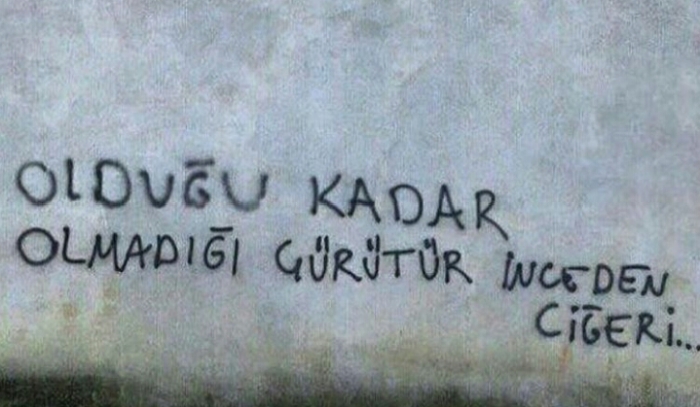 OLDUĞU KADAR
OLMADIĞI GÜRÜTÜR İNCEDEN
CİĞERİ...